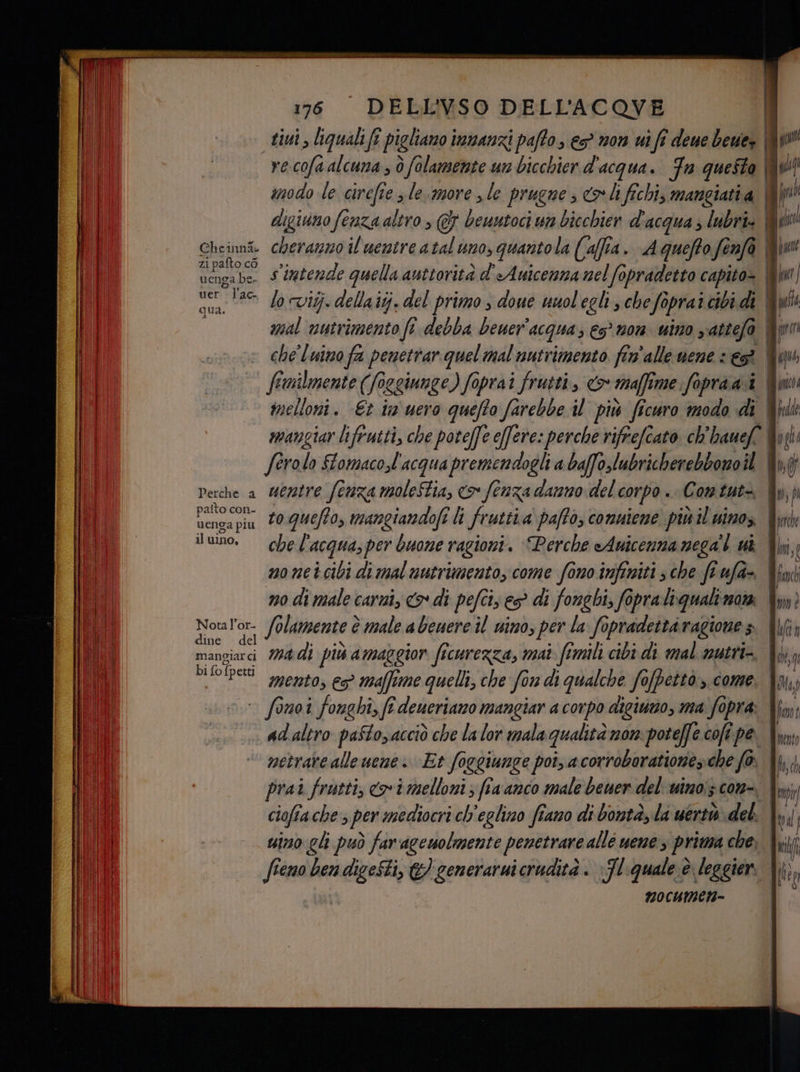 176 DELL'VSO DELL'ACQVE
tiui, liquali si pigliano innanzi pasto, & non ui si deue beue,
re cosa alcuna, ò solamente un bicchier d'acqua. In questo
modo le cirese, le more, le prugne, & li fichi, mangiati a
digiuno senza altro, & beuutoci un bicchier d'acqua, lubri-
cheranno il uentre a tal uno, quanto la Cassia. A questo senso
s'intende quella auttorità d'Auicenna nel sopradetto capito-
lo viij. della iij. del primo, doue uuol egli, che sopra i cibi di
mal nutrimento si debba beuer'acqua, & non uino, atteso
che'l uino fa penetrar quel mal nutrimento fin'alle uene: &
similmente (soggiunge) sopra i frutti, & massime sopra a i
melloni. Et in uero questo sarebbe il più sicuro modo di
mangiar li frutti, che potesse essere: perche rifrescato ch'haues-
serolo stomaco, l'acqua premendogli a basso, lubricherebbono il
uentre senza molestia, & senza danno del corpo. Con tut-
to questo, mangiandosi li frutti a pasto, conuiene più il uino,
che l'acqua, per buone ragioni. Perche Auicenna nega'l ui
no ne i cibi di mal nutrimento, come sono infiniti, che si usa-
no di male carni, & di pesci, & di fonghi, sopra li quali non
solamente è male a beuere il uino, per la sopradetta ragione;
ma di più a maggior sicurezza, mai simili cibi di mal nutri-
mento, & massime quelli, che son di qualche sospetto, come
sono i fonghi, si deueriano mangiar a corpo digiuno, ma sopra
ad altro pasto, acciò che la lor mala qualità non potesse cosi pe
netrare alle uene. Et soggiunge poi, a corroboratione, che so-
pra i frutti, & i melloni, sia anco male beuer del uino; con-
ciosia che, per mediocri ch'eglino siano di bontà, la uertù del
uino gli può far ageuolmente penetrare alle uene, prima che
sieno ben digesti, & generarui crudità. Il quale è leggier
nocumen-
Che inná-
zi pasto cō
uenga be-
uer l'ac-
qua.
Perche a
pasto con-
uenga piu
il uino.
Nota l'or-
dine del
mangiar ci
bi sospetti